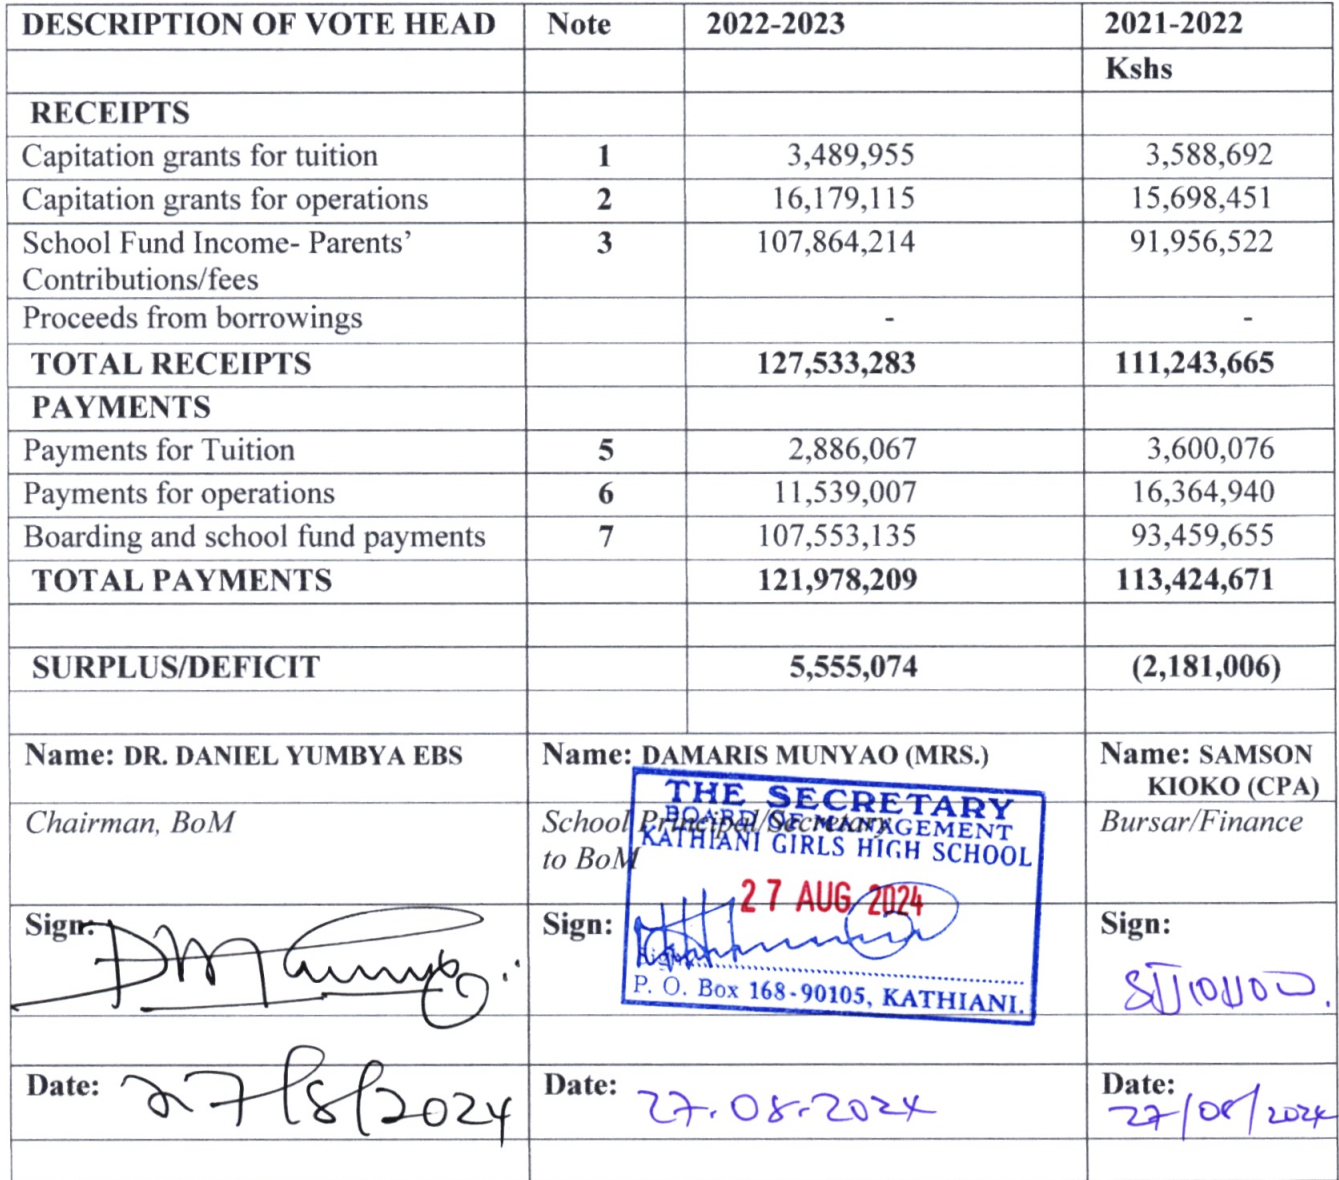 DESCRIPTION OF VOTE HEAD Note 2022-2023 2021-2022
Kshs
RECEIPTS
Capitation grants for tuition 1 3,489,955 3,588,692
Capitation grants for operations 2 16,179,115 15,698,451
School Fund Income- Parents’ 3 107,864,214 91,956,522
Contributions/fees
Proceeds from borrowings - -
TOTAL RECEIPTS 127,533,283 111,243,665
PAYMENTS
Payments for Tuition 5 2,886,067 3,600,076
Payments for operations 6 11,539,007 16,364,940
Boarding and school fund payments 7 107,553,135 93,459,655
TOTAL PAYMENTS 121,978,209 113,424,671
SURPLUS/DEFICIT 5,555,074 (2,181,006)
Name: DR. DANIEL YUMBYA EBS
Name: DAMARIS MUNYAO (MRS.)
Name: SAMSON
KIOKO (CPA)
Chairman, BoM
School Principal/Secretary
to BoM
Bursar/Finance
THE SECRETARY
BOARD OF MANAGEMENT
KATHIANI GIRLS HIGH SCHOOL
27 AUG 2024
Sign:
P. O. Box 168-90105, KATHIANI.
Sign:
Sign:
Sign:
Date: 27/8/2024
Date: 27.08.2024
Date:
27/08/2024